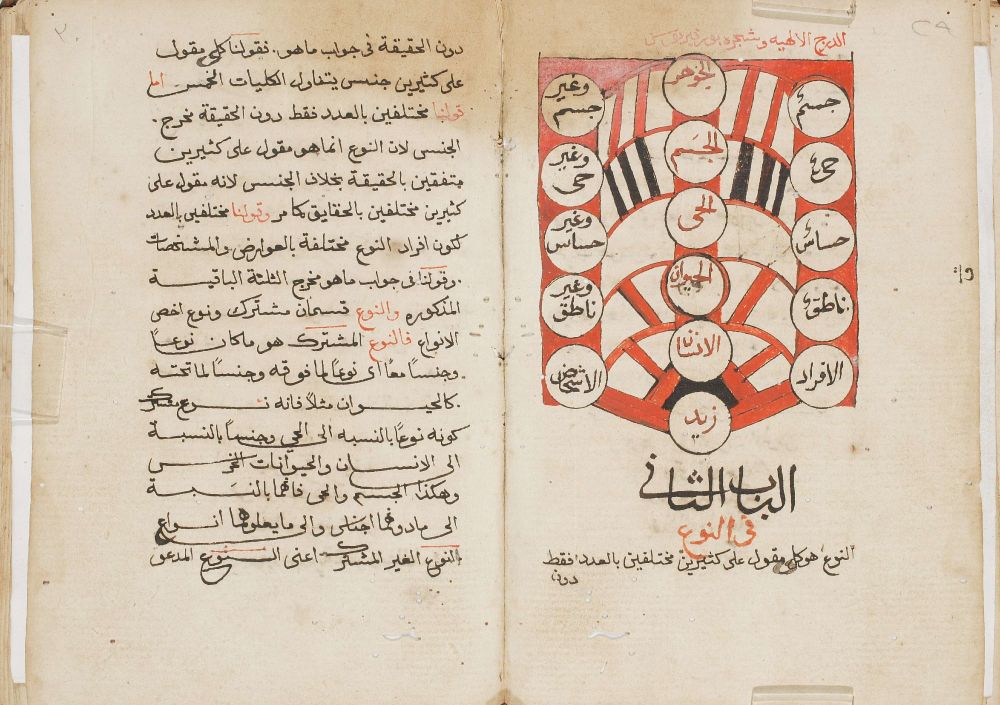 ٢٩
الدرج الالهيه وشجرة بورفيريوس
الجوهر
جسم
وغير
جسم
الجسم
حي
وغير
حي
الحي
حساس
وغير
حساس
الحيوان
ناطق
وغير
ناطق
الانسان
الافراد
الاشخاص
زيد
الباب الثاني
في النوع
النوع هو كلي مقول على كثيرين مختلفين بالعدد فقط
دون
دون الحقيقة في جواب ماهو. فقولنا كلي مقول
على كثيرين جنس يتناول الكليات الخمس اما
قولنا مختلفين بالعدد فقط دون الحقيقة مخرج.
الجنس لان النوع انما هو مقول على كثيرين
متفقين بالحقيقة بخلاف الجنس لانه مقول على
كثيرين مختلفين بالحقايق كما مر وقولنا مختلفين بالعدد
لكون افراد النوع مختلفة بالعوارض والمشخصات
وقولنا في جواب ماهو مخرج الثلثة الباقية
المذكوره والنوع قسمان مشترك ونوع اخص
الانواع فالنوع المشترك هو ما كان نوعًا
وجنسًا معًا اى نوعًا لما فوقه وجنسًا لما تحته
كالحيوان مثلًا فانه نوع مشترك
كونه نوعًا بالنسبه الى الحي وجنسا بالنسبة
الى الانسان والحيوانات الخرس
وهكذا الجسم والحي فانهما بالنسبة
الى مادونهما اجناس والى ما يعلوهما انواع
النوع الغير المشترك اعنى النوع المدعو